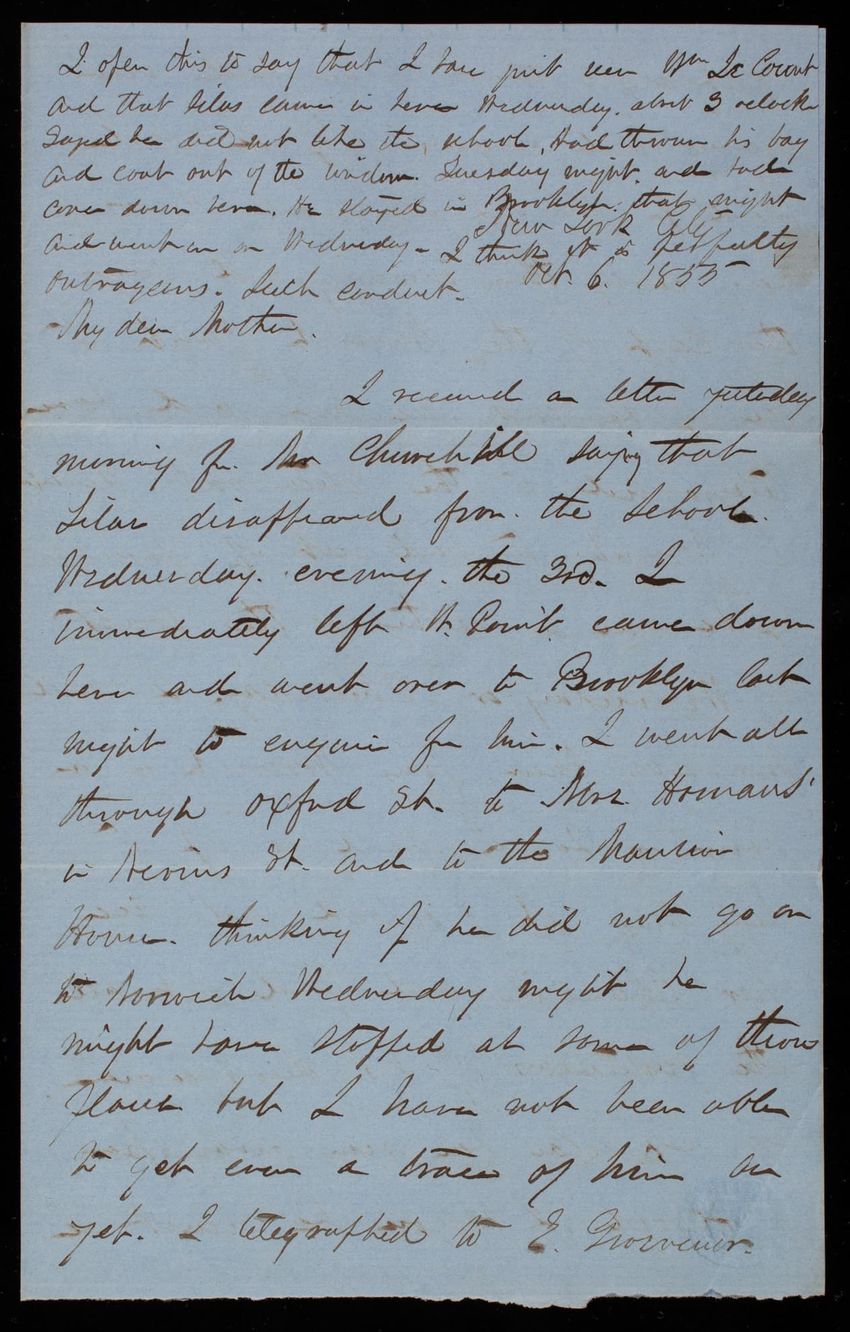 I open this to say that I have just seen Wm Le Count
and that Silas came in here Wednesday. about 3 oclock
Sayed he did not like the school, Had thrown his bag
and coat out of the window. Tuesday night. and had
come down here. He stayed in Brooklyn. that night
and went on on Wednesday - I think it is perfectly
outrageous. Such conduct.
New York City
Oct. 6. 1855
My dear Mother.
I received a letter yesterday
morning fr. Mr Churchill saying that
Silas disappeared from. the School.
Wednesday. evening. the 3rd. I
immediately left W. Point came down
here and went over to Brooklyn last
night to enquire for him. I went all
through Oxford St. to Mrs. Homans'
in Nevins St. and to the Mansion
House. thinking if he did not go on
to Norwich Wednesday night he
might have stopped at some of those
places but I have not been able
to get even a trace of him as
yet. I telegraphed to E. Grosvenor.